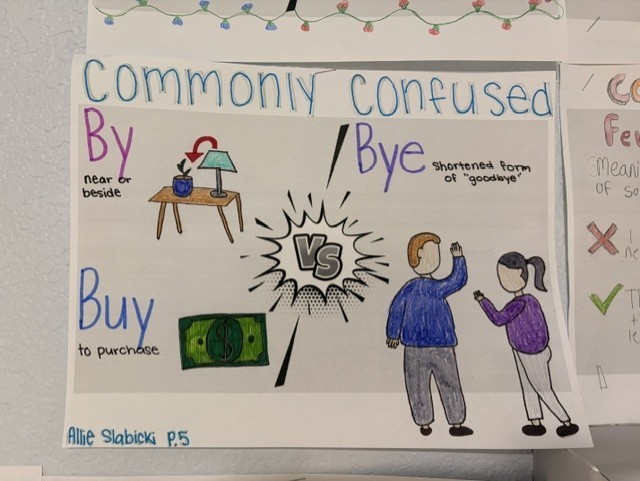 Commonly Confused
By
near or
beside
Bye
shortened form
of "goodbye"
VS
Buy
to purchase
$
Allie Slabicki P.5
Co
Few
Meani
of so